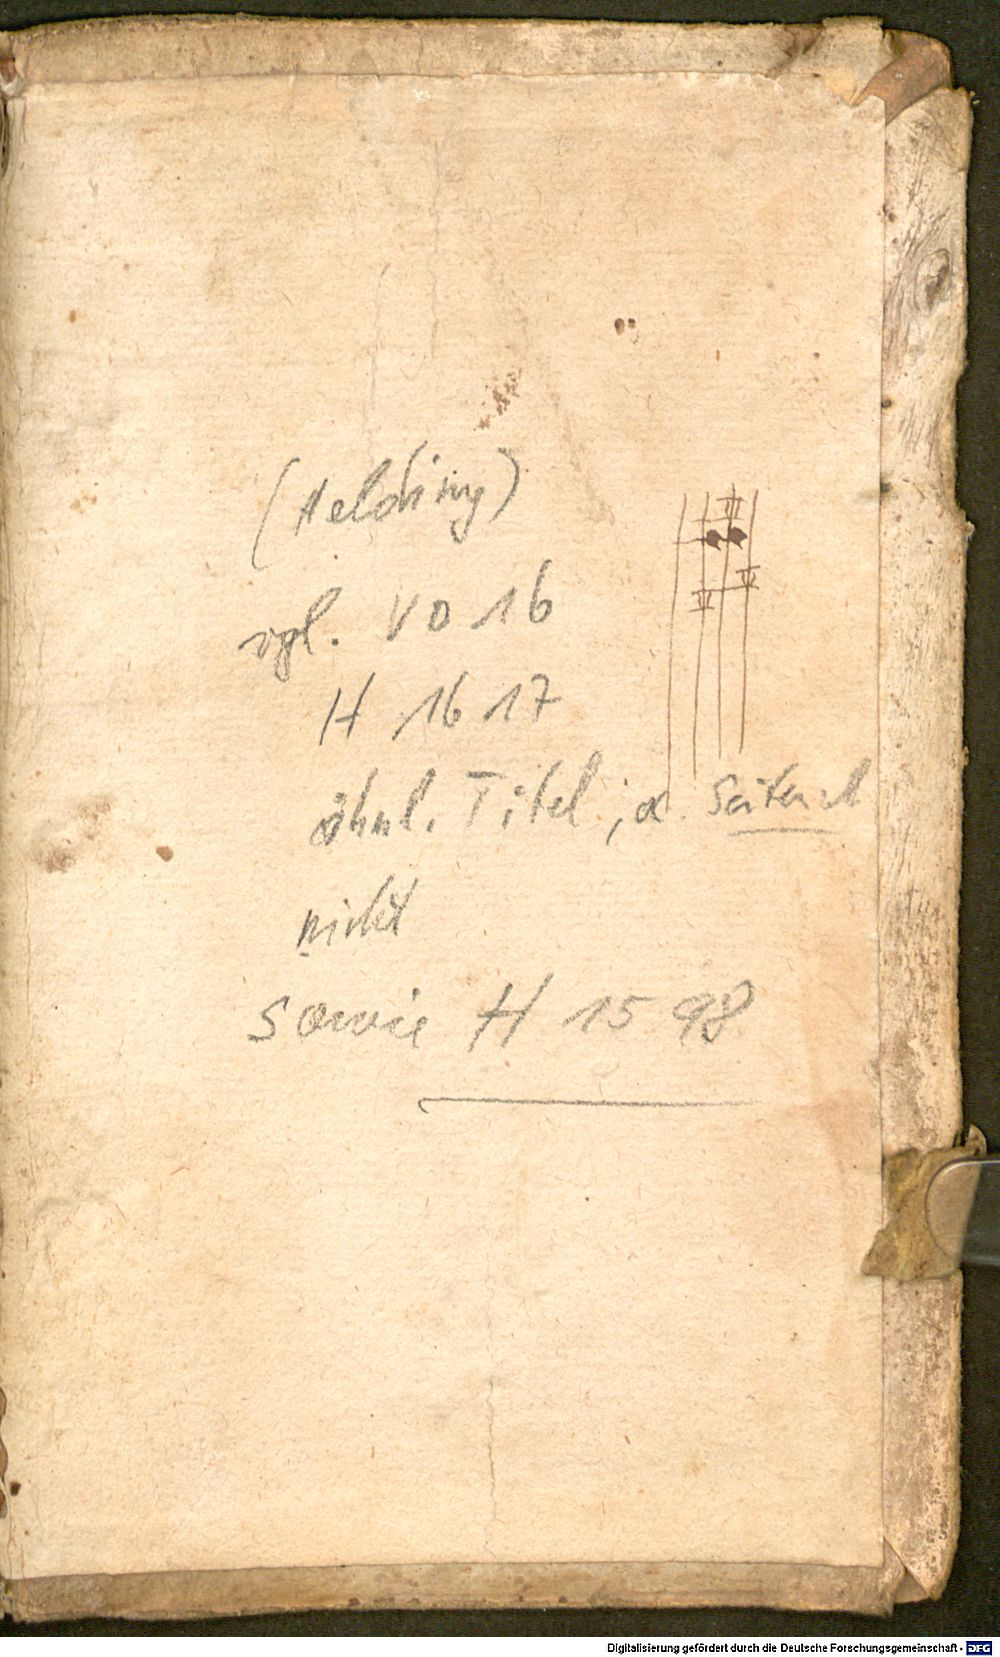 vgl. VD 16
H 1617
ähnl. Titel, a.
nicht
sowie H 1598
Digitalisierung gefördert durch die Deutsche Forschungsgemeinschaft - DFG